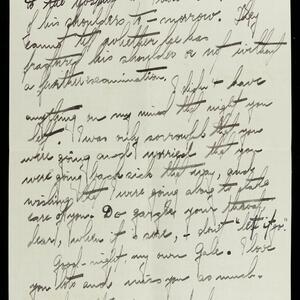 to the hospital
of his shoulders to-morrow. They
cannot tell whether he has
fractured his shoulder or not without
a further examination.
I didn't have
anything on my mind the night you
left. I was only sorrowful that you
were going and worried that you
were going back sick that way, and
wishing that I were going along to take
care of you. Do gargle your throat,
dear, when it's sore, - don't "let it go".
Good-night my own Gale. I love
you lots and miss you so much.